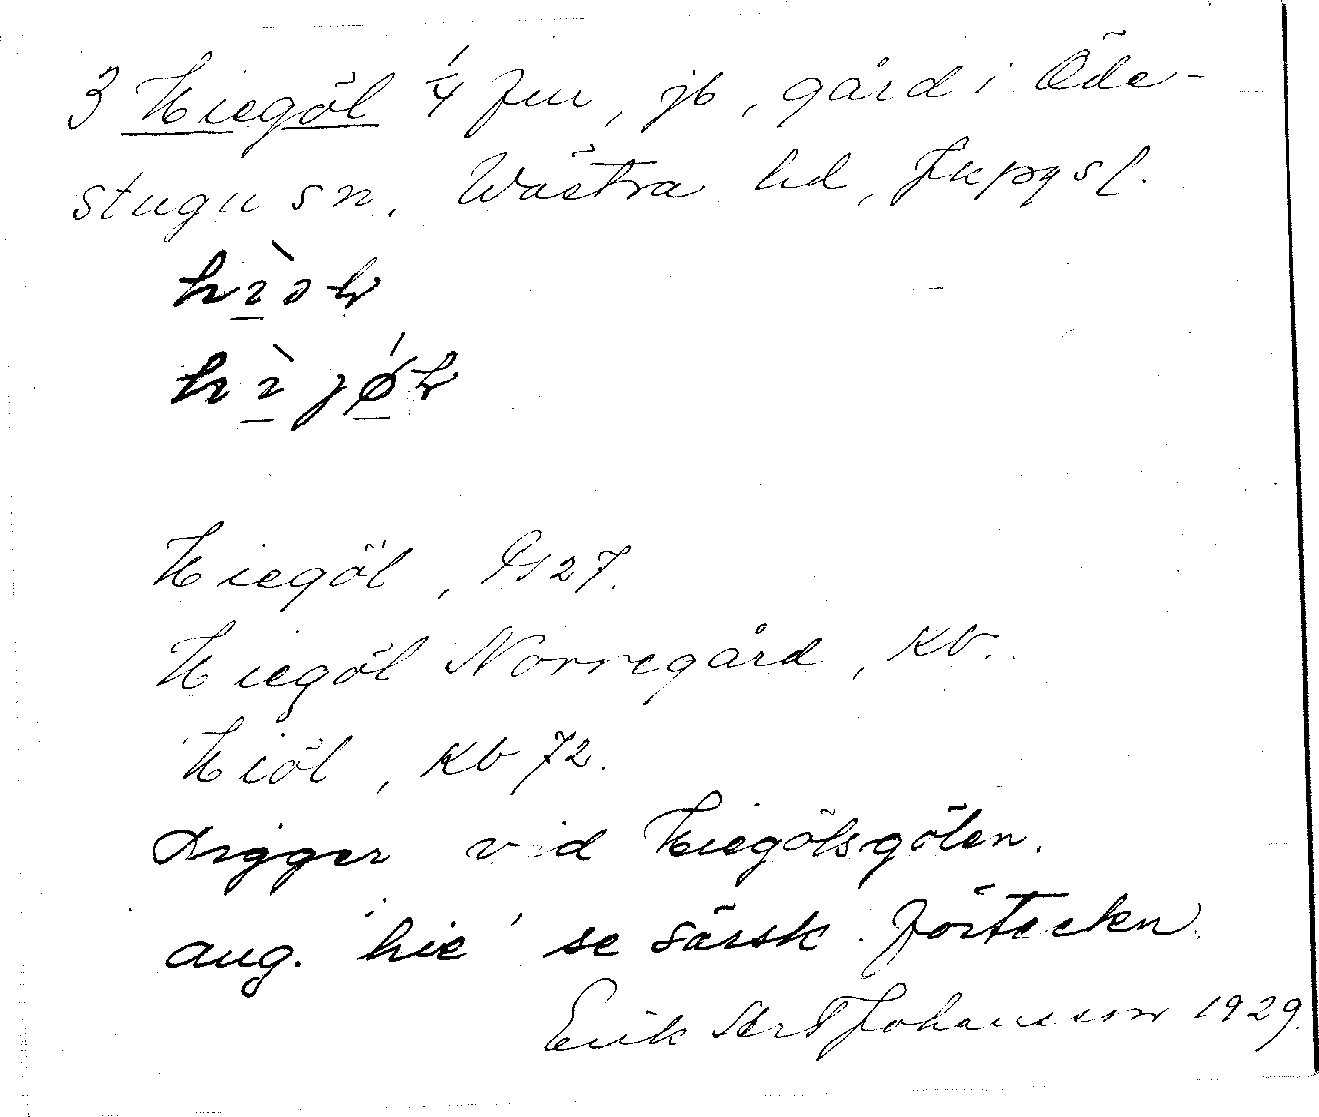 3 Hiegöl 1/4 fur, jb, gård i Öde-
stugu sn, Wästra hd, Jkpgs l.
Hiegöl, GS 27.
Hiegöl Norregård, Kb.
Hiöl, Kb 72.
Ligger vid Hiegölsgölen.
ang. 'hie' se särsk. förteckn.
Erik Johansson 1929.